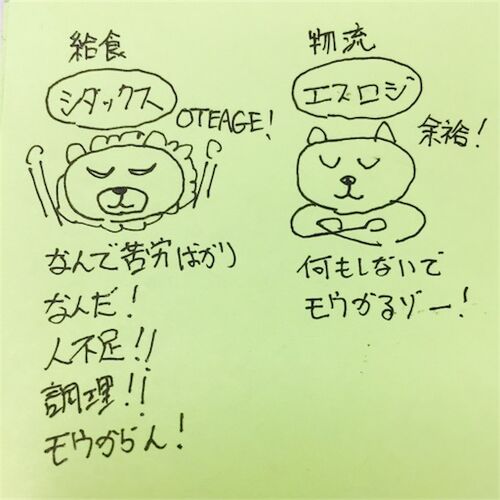 給食
シダックス
OTEAGE!
なんで苦労ばかり
なんだ!
人不足!!
調理!!
モウからん!
物流
エスロジ
余裕!
何もしないで
モウかるゾー!